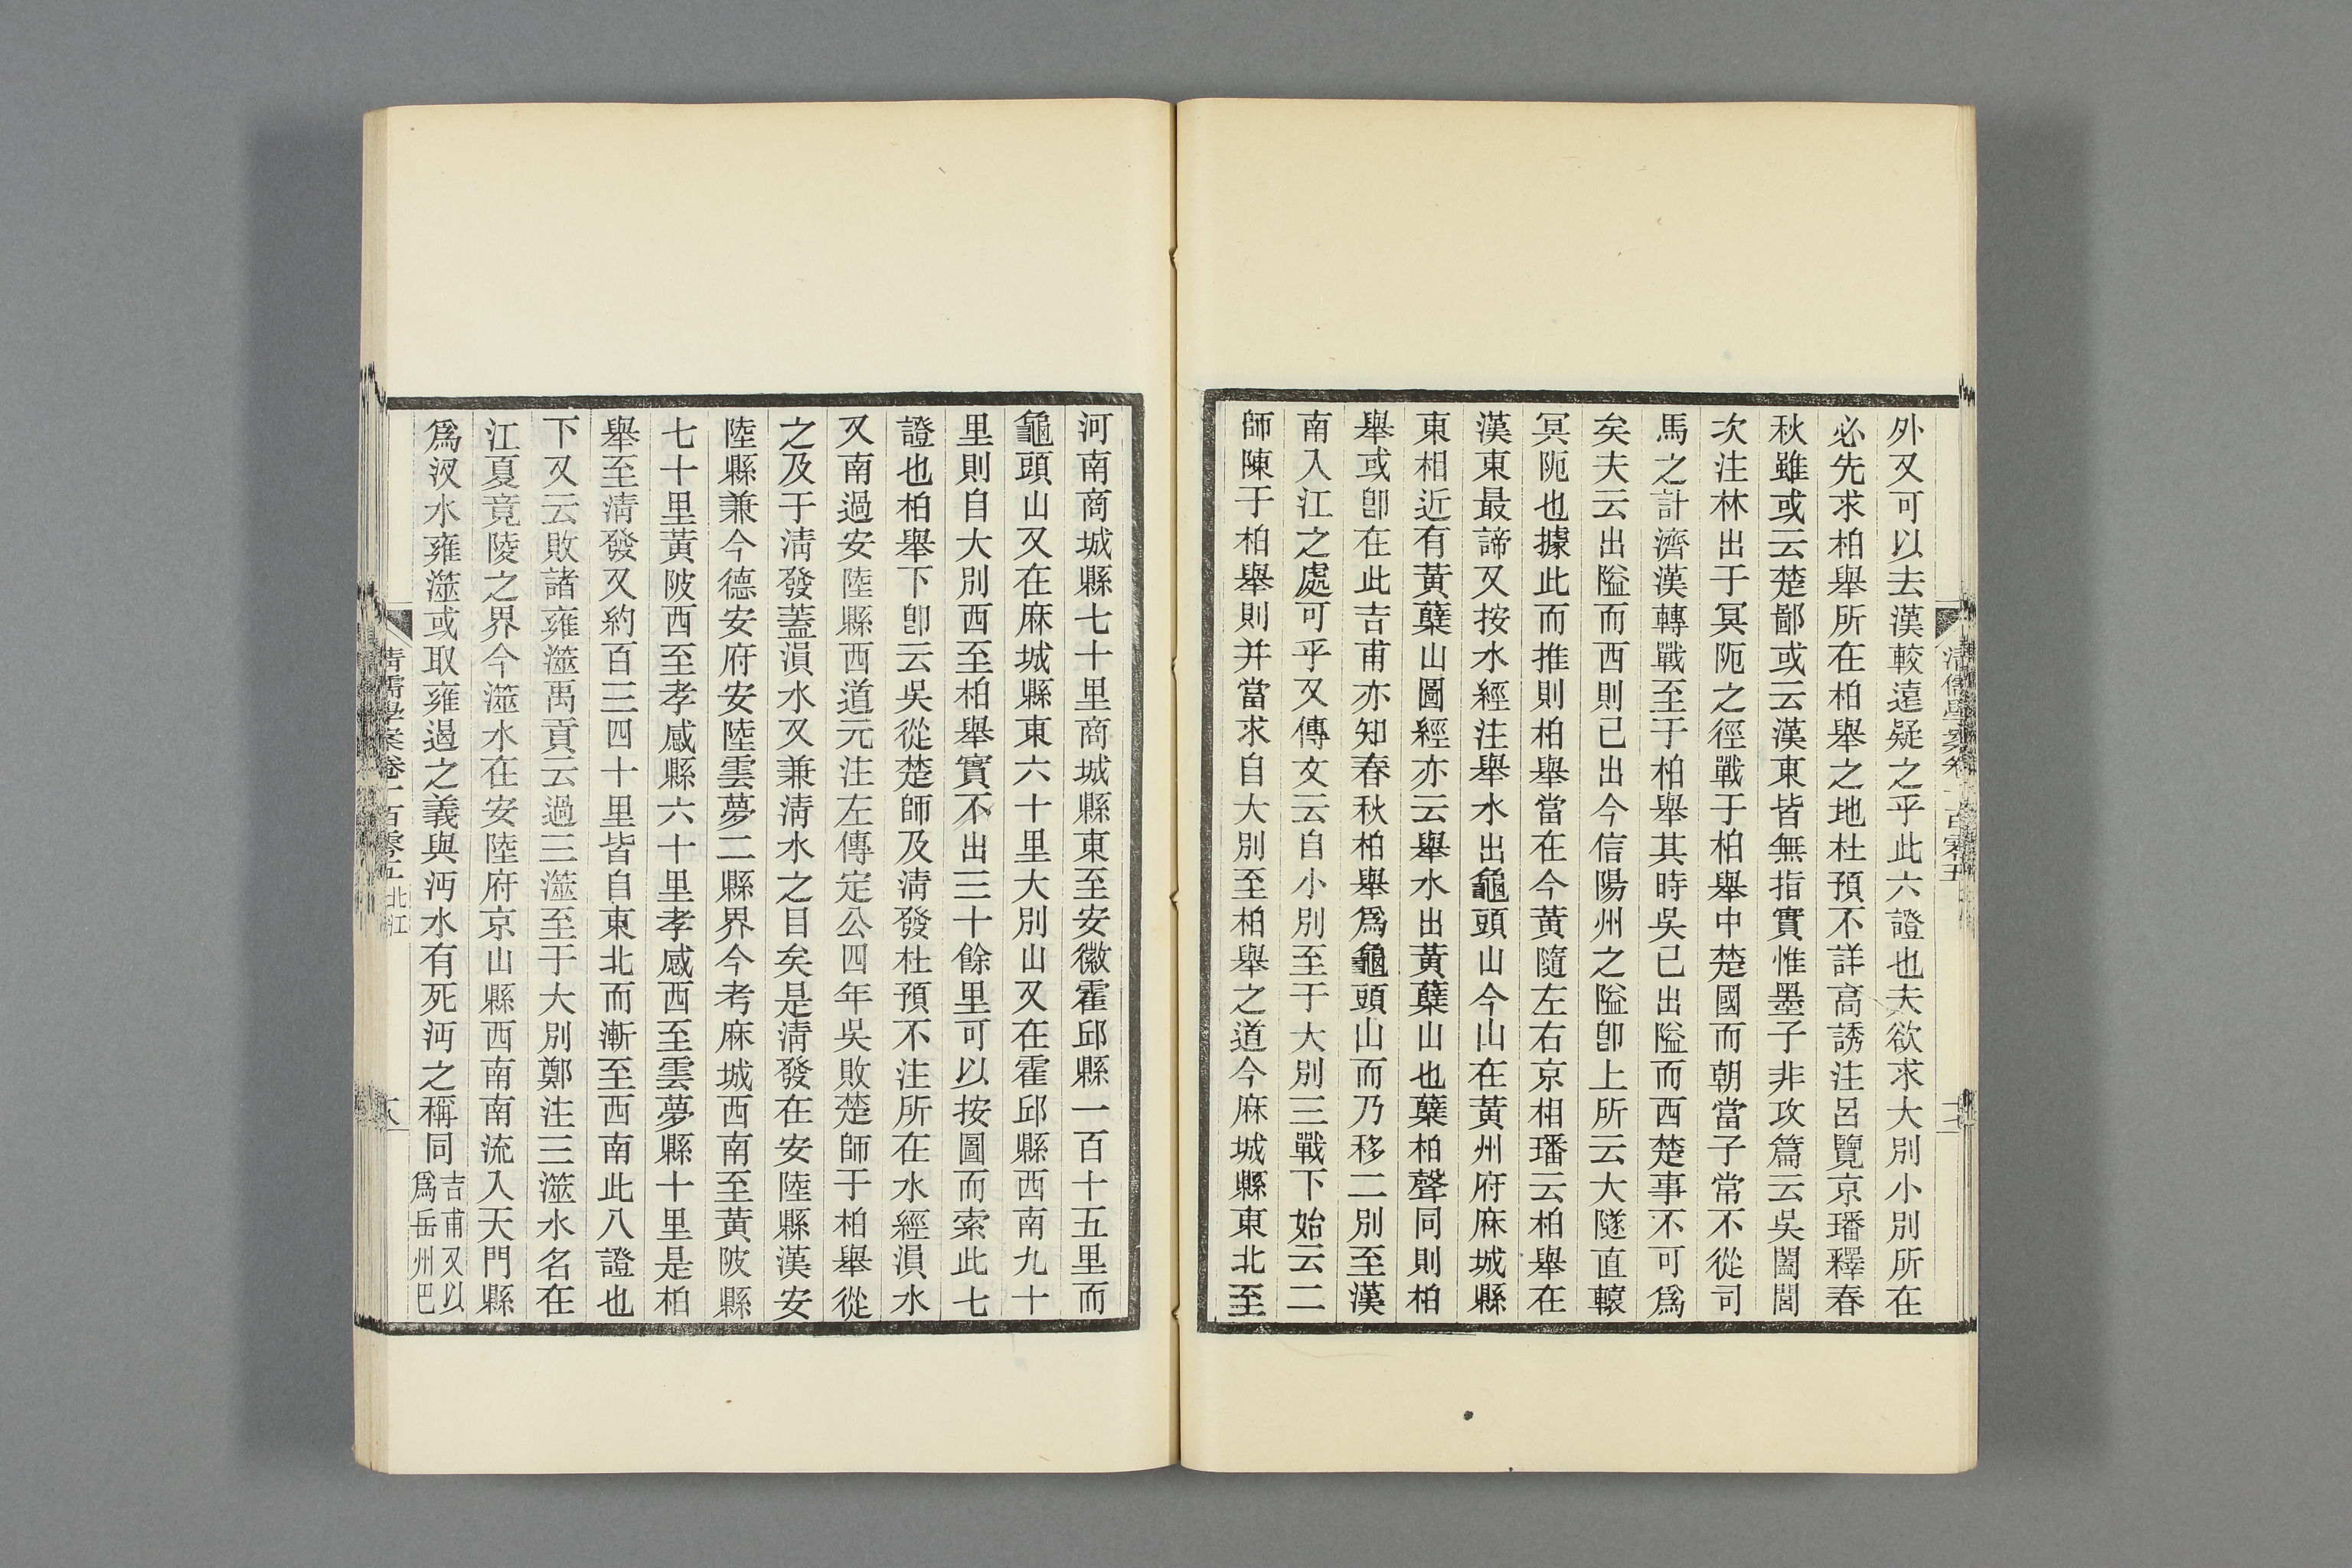 外又可以去漢較遠疑之乎此六證也夫欲求大別小別所在
必先求柏舉所在柏舉之地杜預不詳高誘注呂覽京璠釋春
秋雖或云楚鄙或云漢東皆無指實惟墨子非攻篇云吳闔閭
次注林出于冥阨之徑戰于柏舉中楚國而朝當子常不從司
馬之計濟漢轉戰至于柏舉其時吳已出隘而西楚事不可爲
矣夫云出隘而西則已出今信陽州之隘卽上所云大隧直轅
冥阨也據此而推則柏舉當在今黃隨左右京相璠云柏舉在
漢東最諦又按水經注舉水出龜頭山今山在黃州府麻城縣
東相近有黃蘗山圖經亦云舉水出黃蘗山也蘗柏聲同則柏
舉或卽在此吉甫亦知春秋柏舉爲龜頭山而乃移二別至漢
南入江之處可乎又傳文云自小別至于大別三戰下始云二
師陳于柏舉則并當求自大別至柏舉之道今麻城縣東北至
清儒學案卷一百零五
河南商城縣七十里商城縣東至安徽霍邱縣一百十五里而
龜頭山又在麻城縣東六十里大別山又在霍邱縣西南九十
里則自大別西至柏舉實不出三十餘里可以按圖而索此七
證也柏舉下卽云吳從楚師及淸發杜預不注所在水經溳水
又南過安陸縣西道元注左傳定公四年吳敗楚師于柏舉從
之及于淸發蓋溳水又兼淸水之目矣是淸發在安陸縣漢安
陸縣兼今德安府安陸雲夢二縣界今考麻城西南至黃陂縣
七十里黃陂西至孝感縣六十里孝感西至雲夢縣十里是柏
舉至淸發又約百三四十里皆自東北而漸至西南此八證也
下又云敗諸雍澨禹貢云過三澨至于大別鄭注三澨水名在
江夏竟陵之界今澨水在安陸府京山縣西南南流入天門縣
爲汊水雍澨或取雍遏之義與沔水有死沔之稱同吉甫又以
爲岳州巴
清儒學案卷一百零五 北江